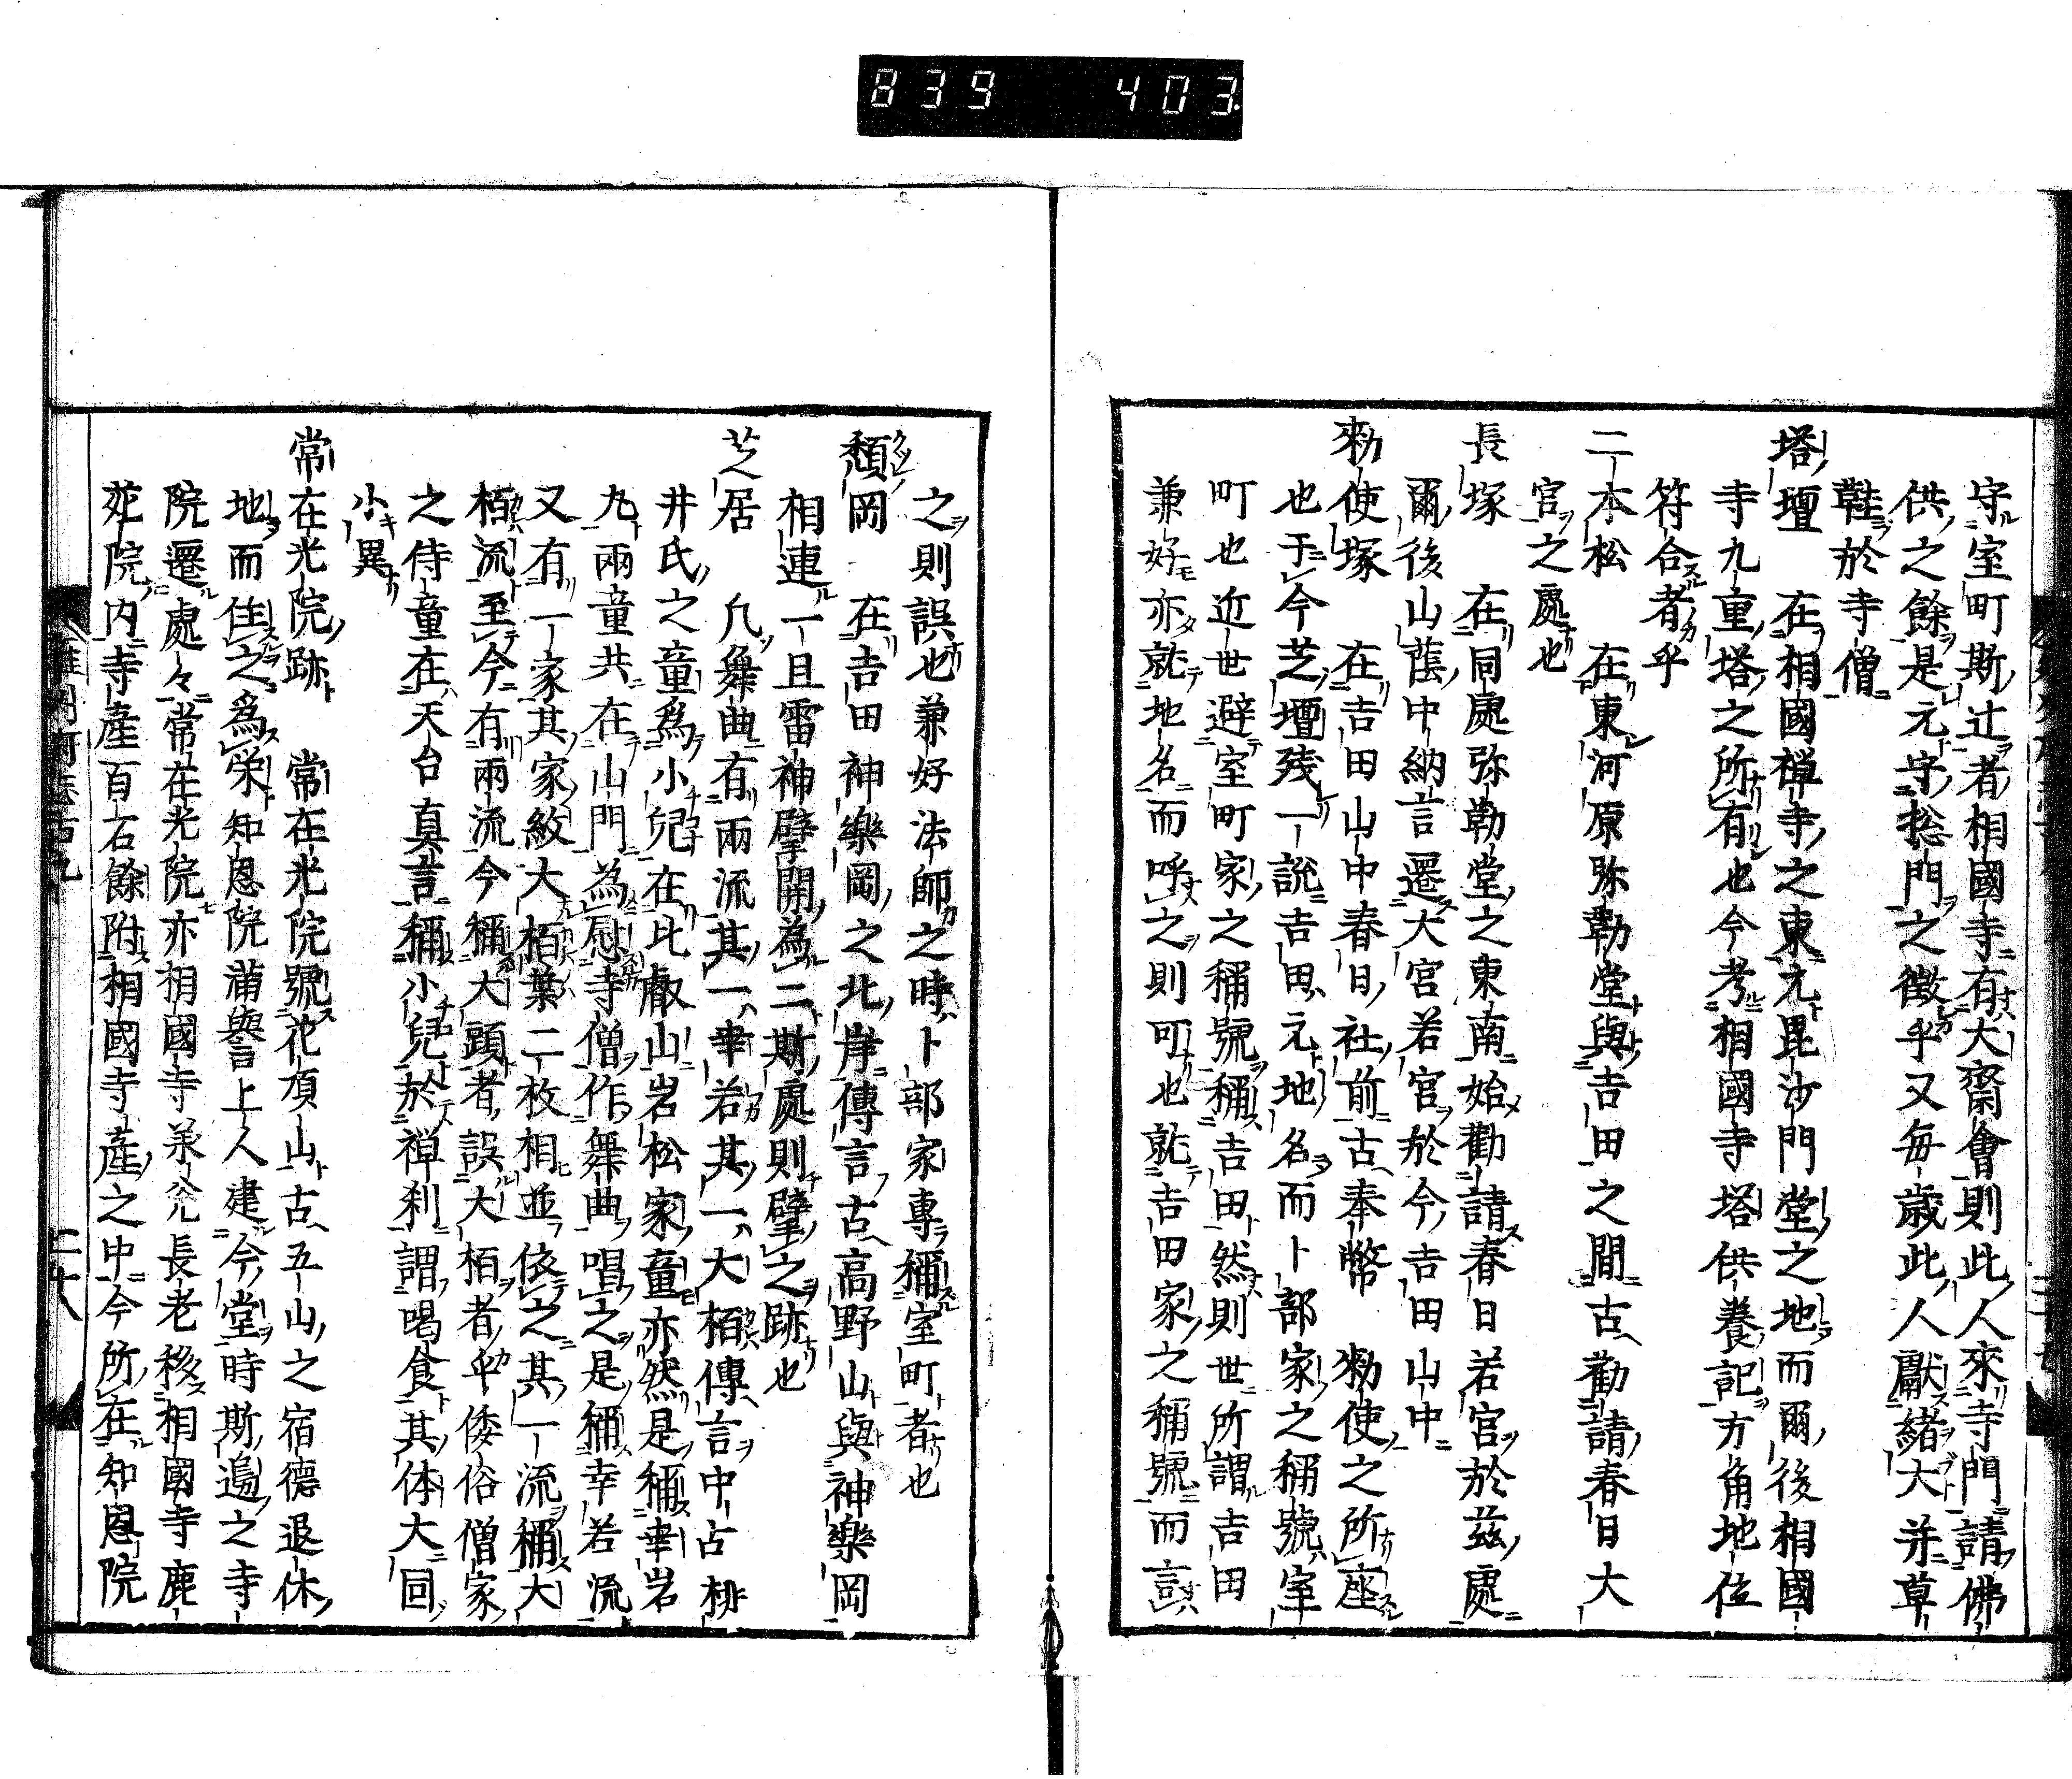 839 403.
守室町斯辻者相國寺有大齋會則此人來寺門請佛
供之餘是元守捴門之徴乎又毎歳此人獻緒大并草
鞋於寺僧
塔壇 在相國禅寺之東元毘沙門堂之地而爾後相國
寺九重塔之所有也今考相國寺塔供養記方角地位
符合者乎
二本松 在東河原弥勒堂與吉田之間古勸請春日大
官之處也
長塚 在同處弥勒堂之東南始勸請春日若宮於茲處
爾後山蔭中納言遷大宮若宮於今吉田山中
勑使塚 在吉田山中春日社前古奉幣勑使之所座
也于今芝壇残一説吉田元地名而卜部家之稱號室
町也近世避室町家之稱號稱吉田然則世所謂吉田
兼好亦就地名而呼之則可也就吉田家之稱號而言
之則誤也兼好法師之時卜部家專稱室町者也
頽岡 在吉田神樂岡之北岸傳言古高野山與神樂岡
相連一旦雷神擘開為二斯處則擘之跡也
芝居 凢舞曲有兩流其一幸若其一大栢傳言中古桃
井氏之童爲小兒在比叡山岩松家童亦然是稱幸岩
九兩童共在山門為慰寺僧作舞曲唱之是稱幸若流
又有一家其家紋大栢葉二枚相並依之其一流稱大
栢流至今有兩流今稱大頭者誤大栢者乎倭俗僧家
之侍童在天台真言稱小兒於禅刹謂喝食其体大同
小異
常在光院跡 常在光院號花頂山古五山之宿德退休
地而住之為栄知恩院蒲譽上人建今堂時斯邉之寺
院遷處々常在光院亦相國寺兼允長老移相國寺鹿
苑院内寺産百石餘附相國寺産之中今所在知恩院
二十八